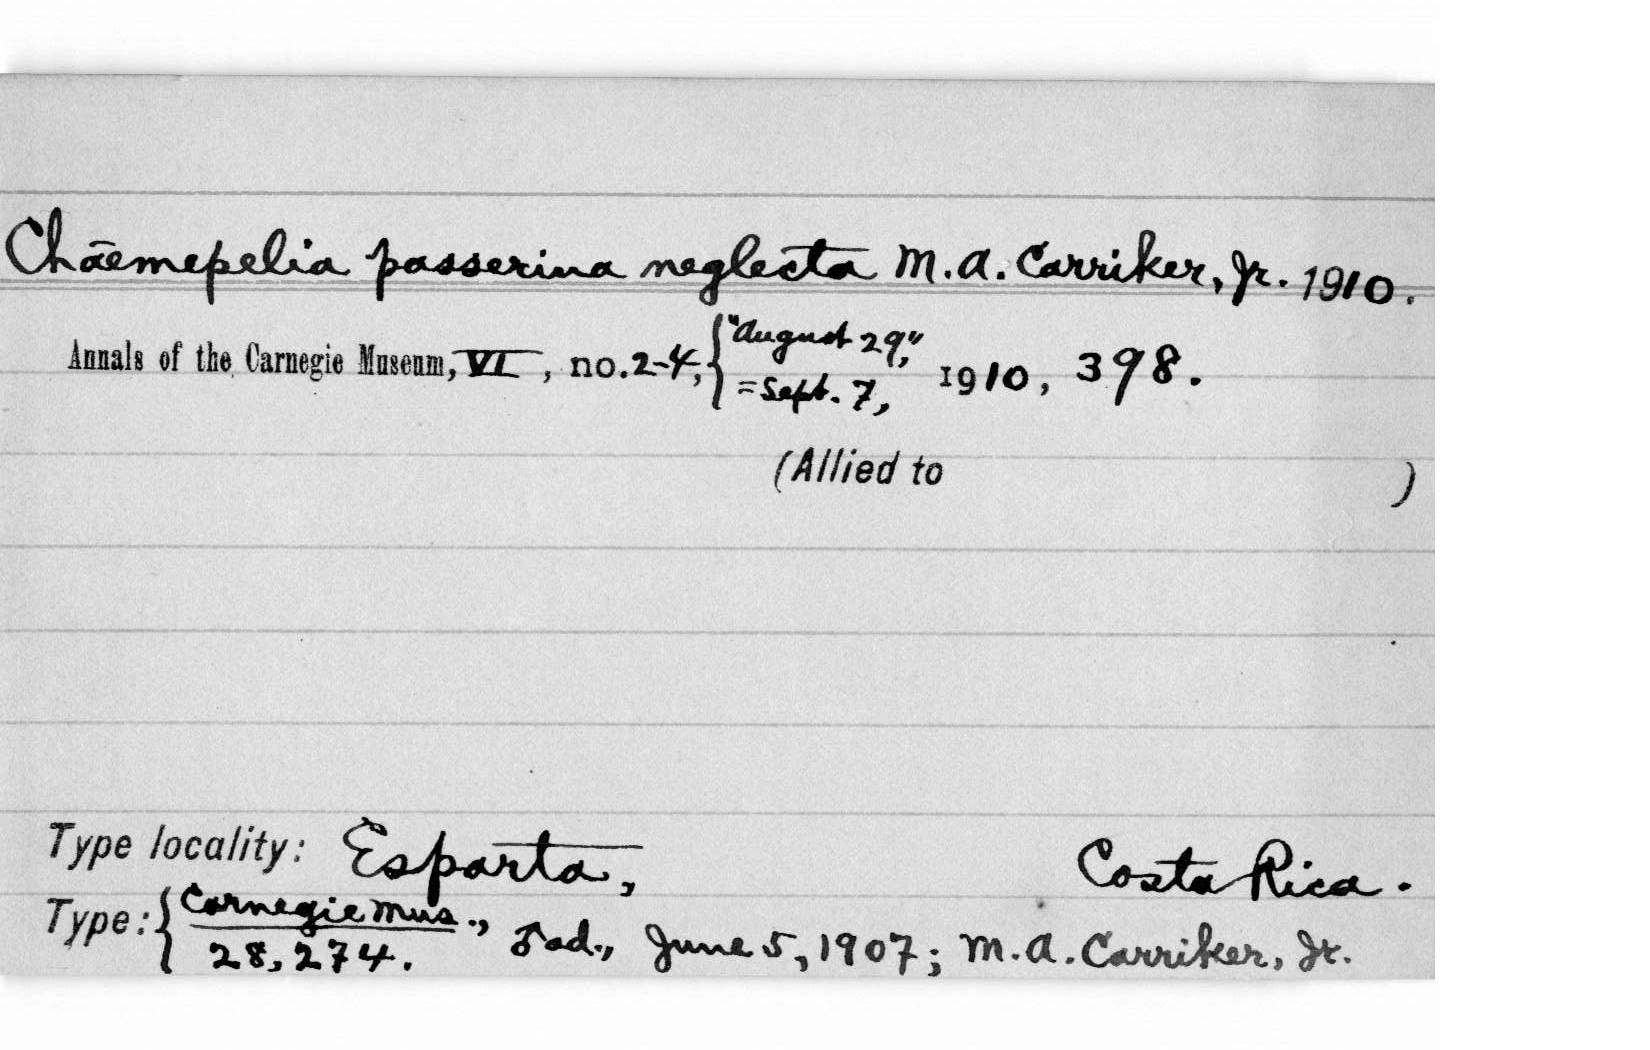 Chāemepelia passerina neglecta M.A. Carriker, Jr. 1910.
Annals of the Carnegie Museum, VI, no. 2-4, { "August 29," = Sept. 7, 1910, 398.
(Allied to )
Type locality: Esparta, Costa Rica.
Type: { Carnegie Mus., ♂ ad., June 5, 1907; M.A. Carriker, Jr.
28,274.